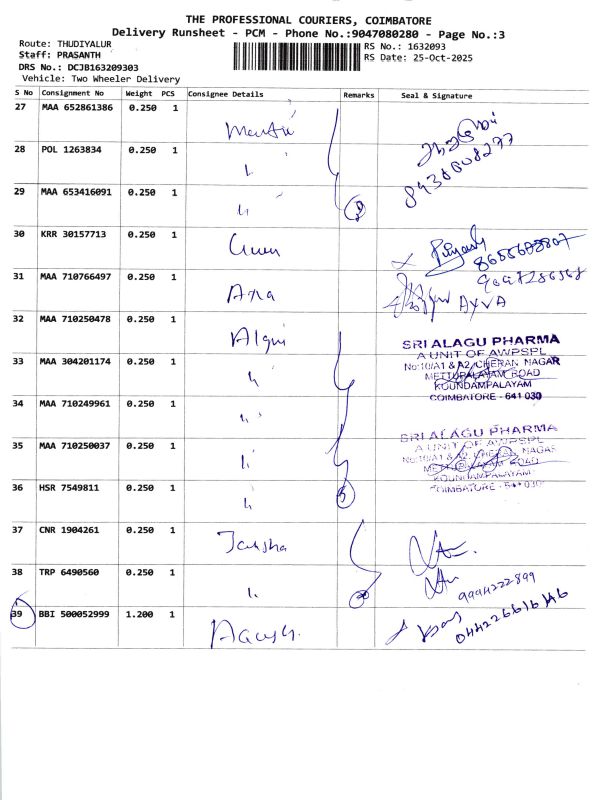 THE PROFESSIONAL COURIERS, COIMBATORE
Delivery Runsheet - PCM - Phone No.:9047080280 - Page No.:3
Route: THUDIYALUR
Staff: PRASANTH
DRS No.: DCJB163209303
Vehicle: Two Wheeler Delivery
RS No.: 1632093
RS Date: 25-Oct-2025
S No Consignment No Weight PCS Consignee Details Remarks Seal & Signature
27 MAA 652861386 0.250 1
28 POL 1263834 0.250 1
29 MAA 653416091 0.250 1
30 KRR 30157713 0.250 1
31 MAA 710766497 0.250 1
AYVA
32 MAA 710250478 0.250 1
SRI ALAGU PHARMA
A UNIT OF AWPSPL
No:10/A1 & A2, CHERAN NAGAR
METTUPALAYAM ROAD
KOUNDAMPALAYAM
COIMBATORE - 641 030
33 MAA 304201174 0.250 1
34 MAA 710249961 0.250 1
35 MAA 710250037 0.250 1
SRI ALAGU PHARMA
A UNIT OF AWPSPL
No:10/A1 & A2, CHERAN NAGAR
METTUPALAYAM ROAD
KOUNDAMPALAYAM
COIMBATORE - 641 030
36 HSR 7549811 0.250 1
37 CNR 1904261 0.250 1
38 TRP 6490560 0.250 1
9994222899
39 BBI 500052999 1.200 1